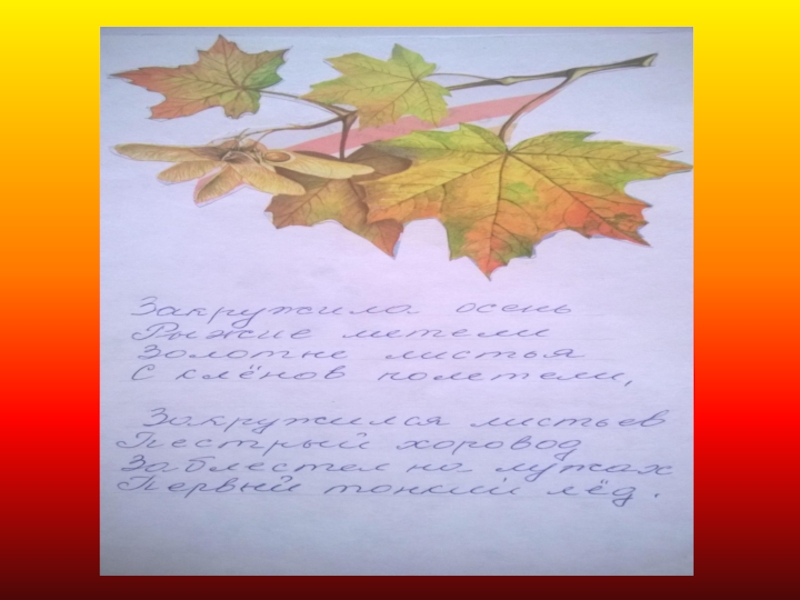 Закружила осень
Рыжие метели
Золотые листья
С клёнов полетели,
Закружился листьев
Пестрый хоровод
Заблестел на лужах
Первый тонкий лёд.